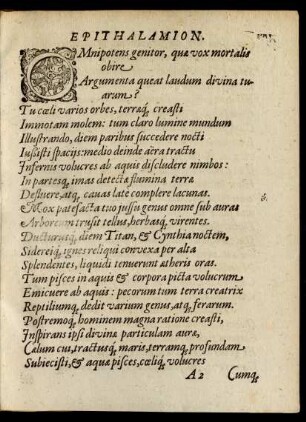 EPITHALAMION.
OMnipotens genitor, quæ vox mortalis
obire
Argumenta queat laudum divina tu-
arum?
Tu cœli varios orbes, terraq́, creasti
Immotam molem: tum claro lumine mundum
Illustrando, diem paribus succedere nocti
Iussisti spacijs: medio deinde aëra tractu
Insernis volucres ab aquis discludere nimbos:
In partesq́, imas detecta flumina terra
Defluere, atq́, cauas late complere lacunas.
Mox patefacta tuo jussu genus omne sub auras
Arboreum trusit tellus, herbasq́, virentes.
Ducturuḿq́, diem Titan, & Cynthia noctem,
Sidereiq́, ignes reliqui convexa per alta
Splendentes, liquidi tenuerunt ætheris oras.
Tum pisces in aquis & corpora picta volucrum
Emicuere ab aquis: pecorum tum terra creatrix
Reptiliumq́, dedit varium genus, atq́, ferarum.
Postremoq́, hominem magna ratione creasti,
Inspirans ipsi divinæ particulam auræ,
Cui cum, tractusq́, maris, terramq́, profundam
Subiecisti, & aquæ pisces, cœliq́, volucres
A2 Cumq́,